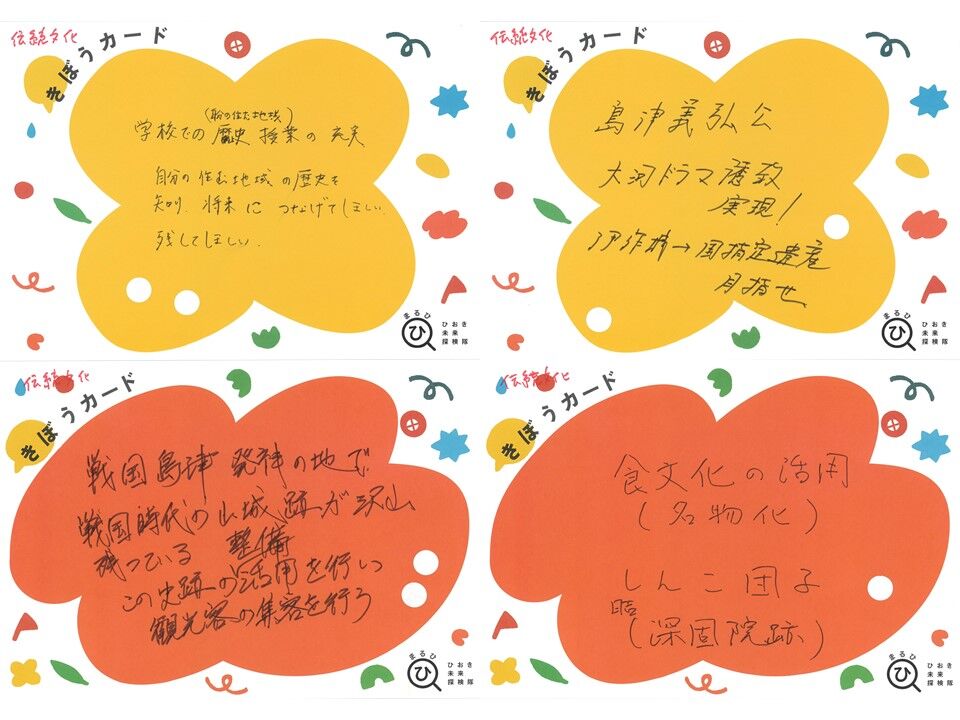 伝統文化
きぼうカード
(自分の住む地域)
学校での歴史授業の充実
自分の住む地域の歴史を
知り、将来につなげてほしい
残してほしい。
まるひ
ひ
ひおき
未来
探検隊
伝統文化
きぼうカード
島津義弘公
大河ドラマ誘致
実現!
伊作城→国指定遺産
目指せ
まるひ
ひ
ひおき
未来
探検隊
伝統文化
きぼうカード
戦国島津発祥の地で
戦国時代の山城跡が沢山
残っている 整備
この史跡の活用を行い
観光客の集客を行う
まるひ
ひ
ひおき
未来
探検隊
伝統文化
きぼうカード
食文化の活用
(名物化)
しんこ団子
(深固院跡)
まるひ
ひ
ひおき
未来
探検隊